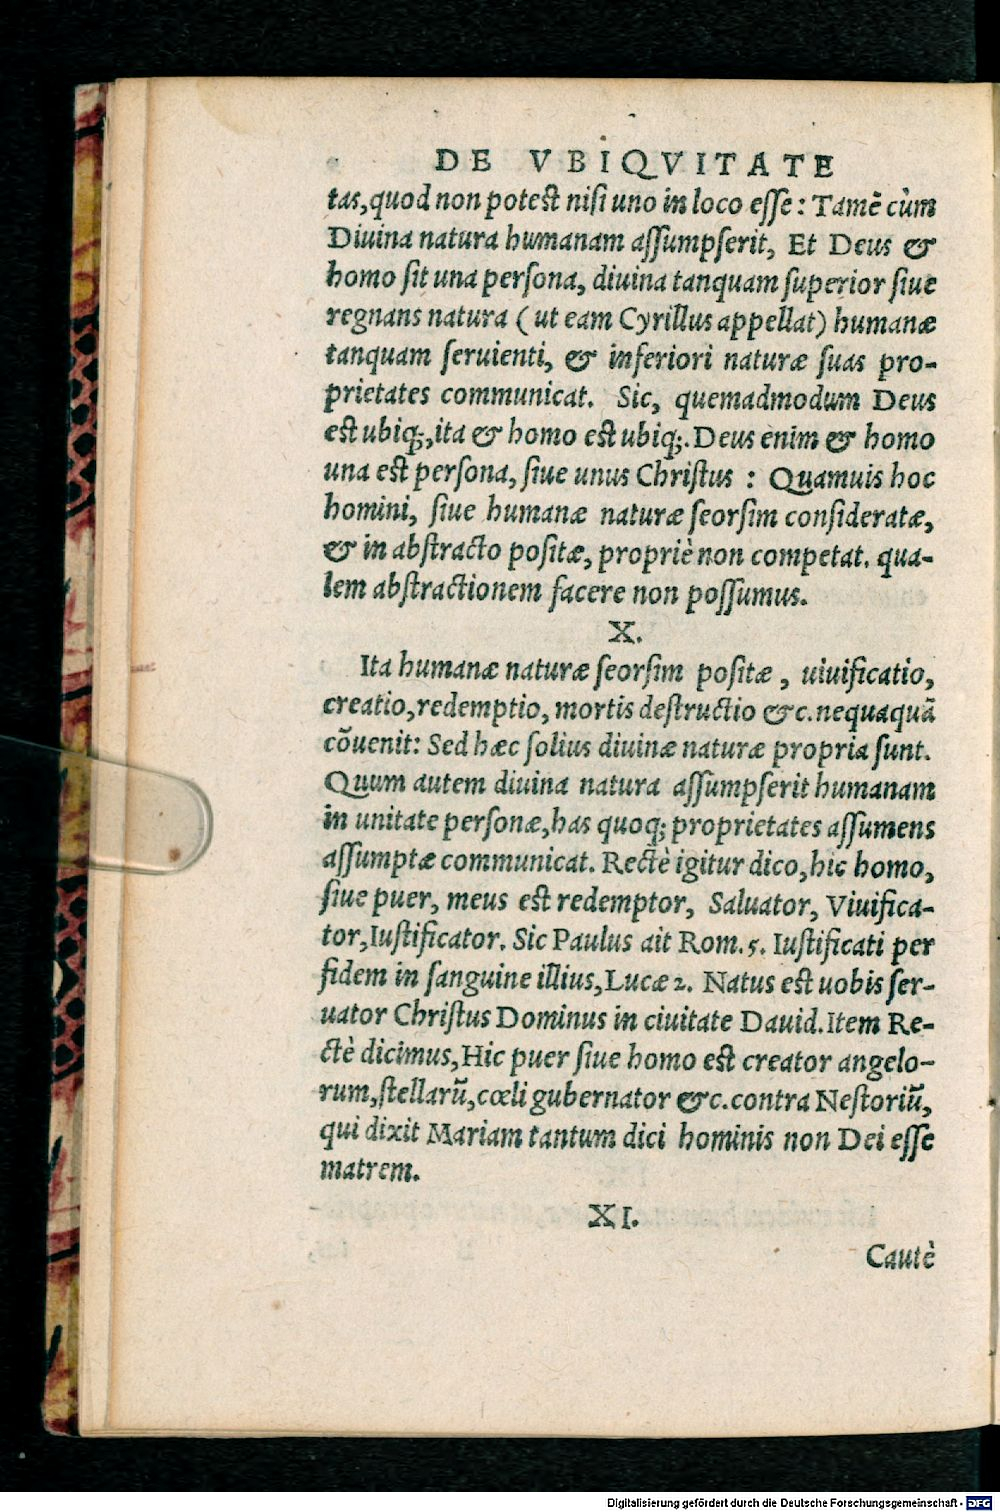 DE VBIQVITATE
tas, quod non potest nisi uno in loco esse: Tamē cùm
Diuina natura humanam assumpserit, Et Deus &
homo sit una persona, diuina tanquam superior siue
regnans natura (ut eam Cyrillus appellat) humanæ
tanquam seruienti, & inferiori naturæ suas pro-
prietates communicat. Sic, quemadmodum Deus
est ubiq;, ita & homo est ubiq;. Deus enim & homo
una est persona, siue unus Christus : Quamuis hoc
homini, siue humanæ naturæ seorsim consideratæ,
& in abstracto positæ, propriè non competat. qua-
lem abstractionem facere non possumus.
X.
Ita humanæ naturæ seorsim positæ, uiuificatio,
creatio, redemptio, mortis destructio &c. nequaquā
cōuenit: Sed hæc solius diuinæ naturæ propria sunt.
Quum autem diuina natura assumpserit humanam
in unitate personæ, has quoq; proprietates assumens
assumptæ communicat. Rectè igitur dico, hic homo,
siue puer, meus est redemptor, Saluator, Viuifica-
tor, Iustificator. Sic Paulus ait Rom. 5. Iustificati per
fidem in sanguine illius, Lucæ 2. Natus est uobis ser-
uator Christus Dominus in ciuitate Dauid. Item Re-
ctè dicimus, Hic puer siue homo est creator angelo-
rum, stellarū, cœli gubernator &c. contra Nestoriū,
qui dixit Mariam tantum dici hominis non Dei esse
matrem.
XI.
Cautè
Digitalisierung gefördert durch die Deutsche Forschungsgemeinschaft - DFG